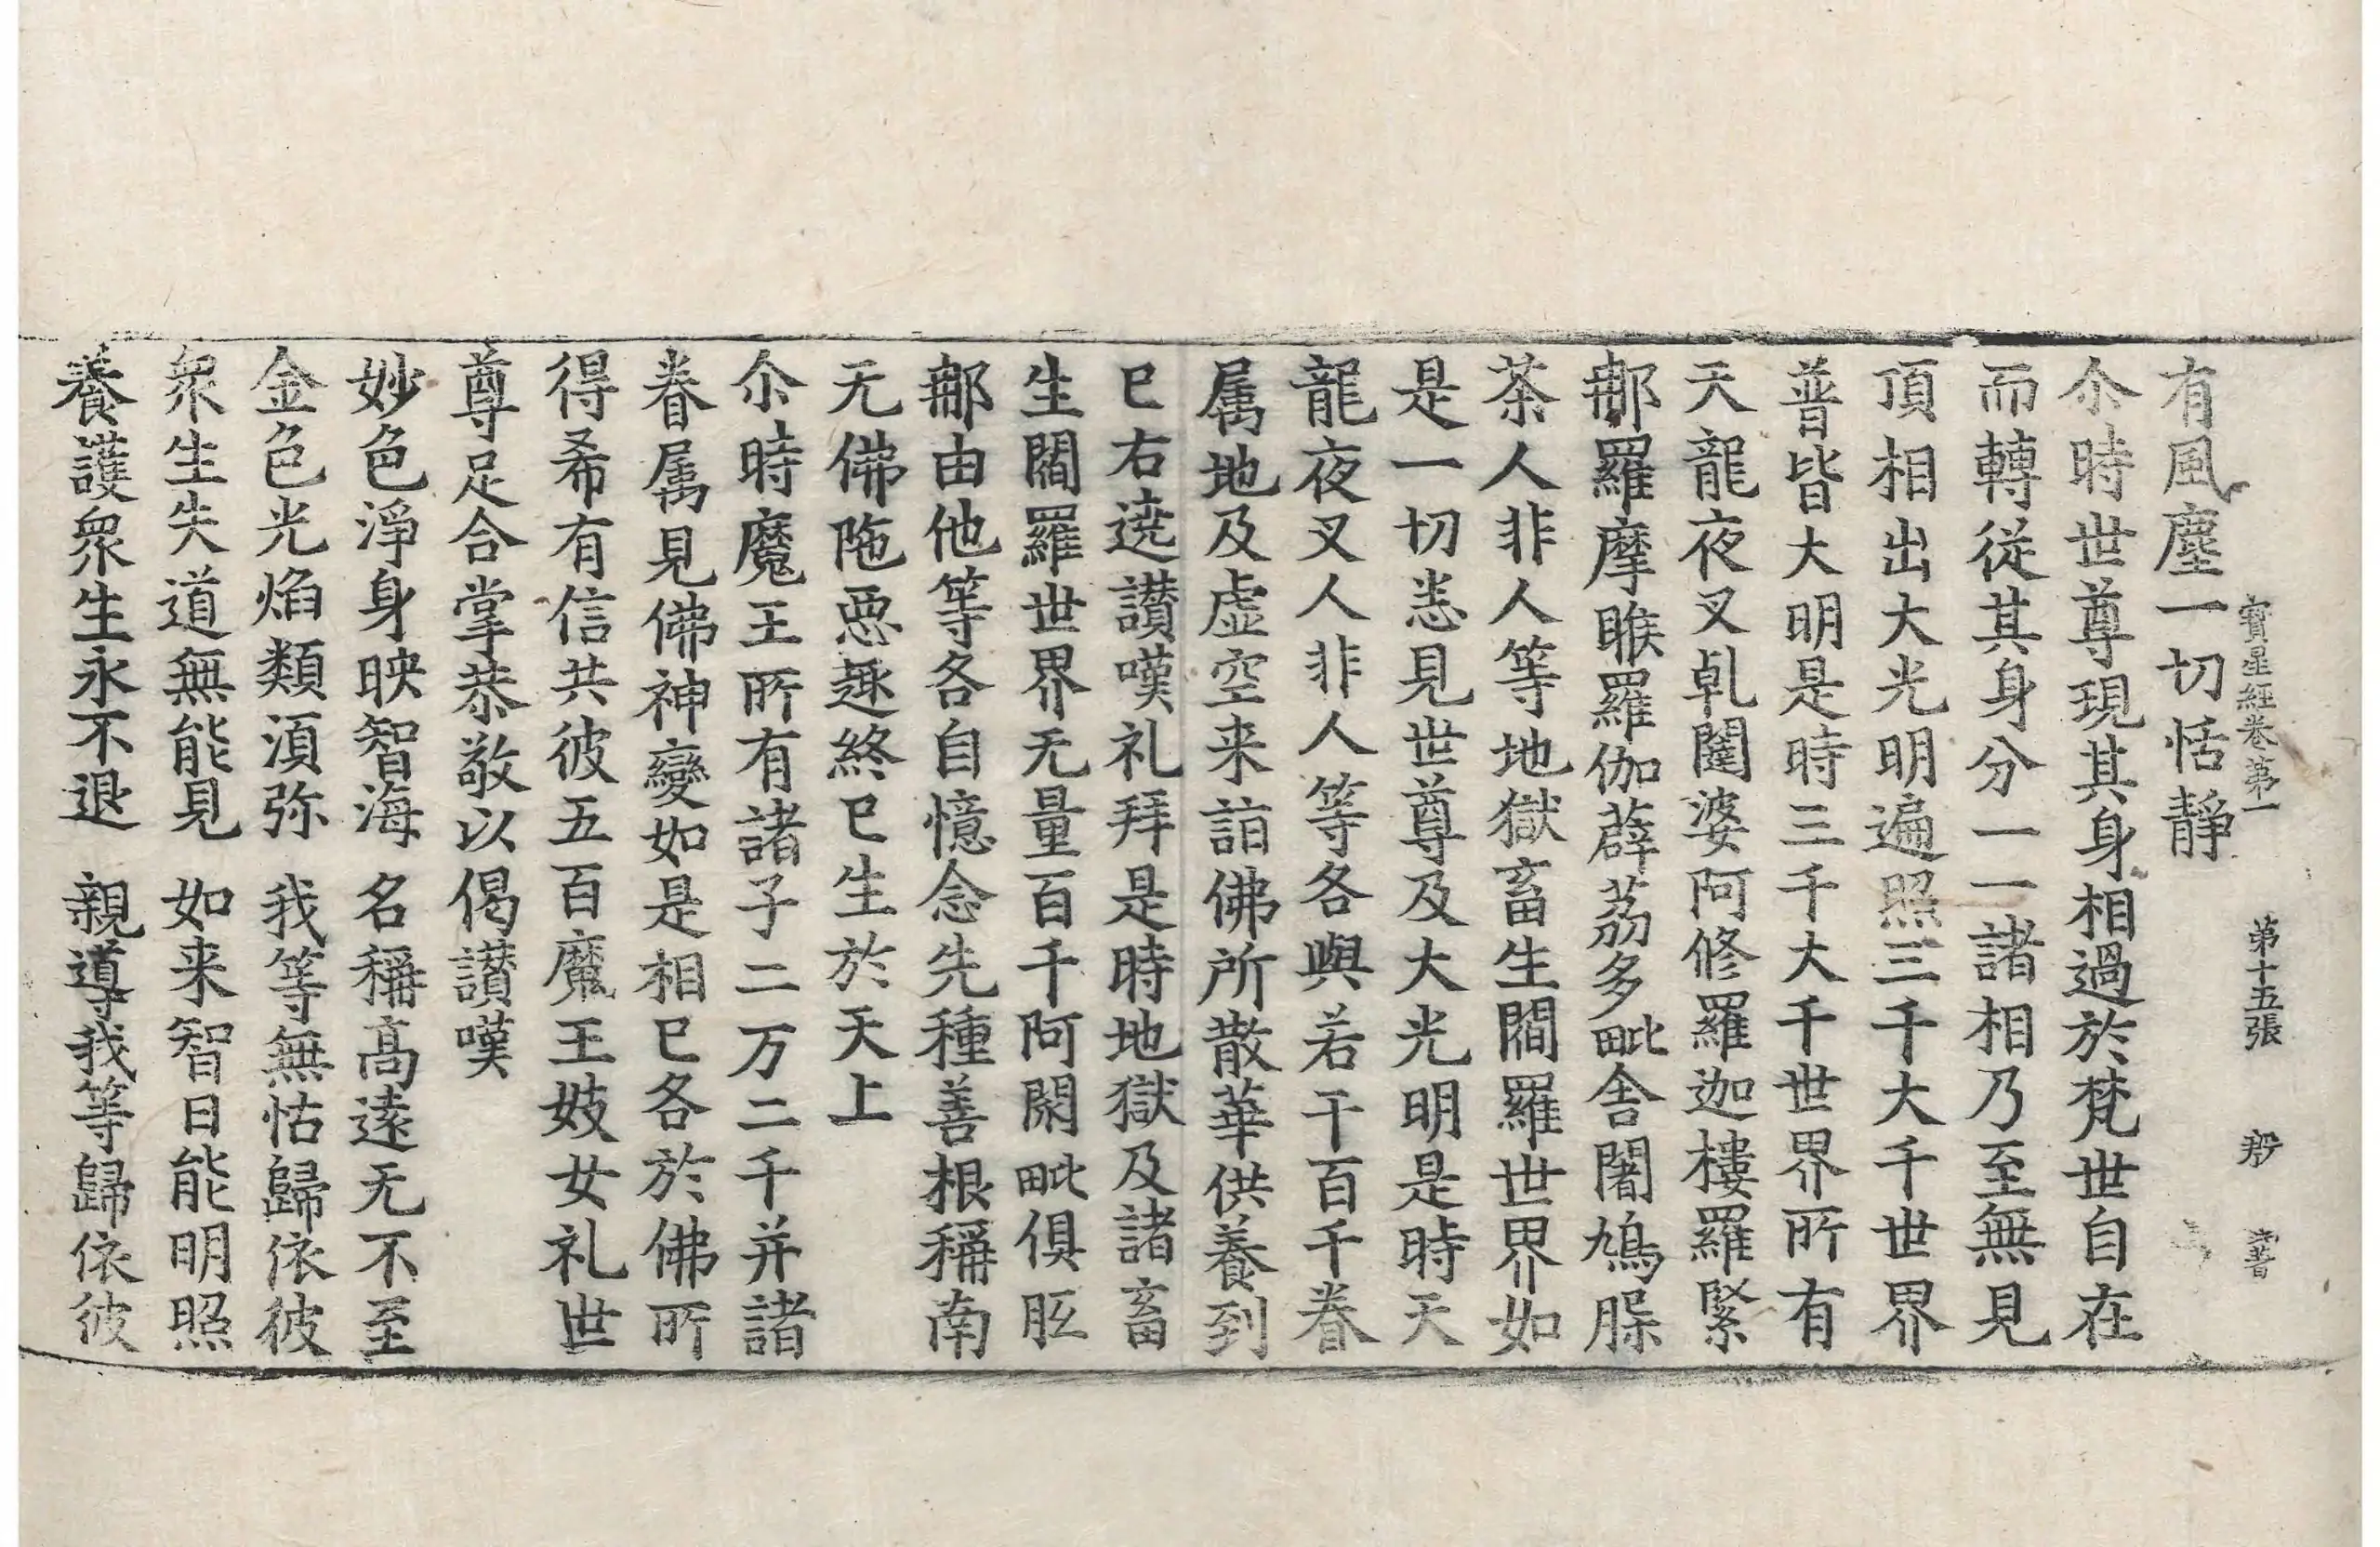 有風塵一切恬靜
寳星經卷第一　第十五張
尒時世尊現其身相過於梵世自在
而轉從其身分一一諸相乃至無見
頂相出大光明遍照三千大千世界
普皆大明是時三千大千世界所有
天龍夜叉乹闥婆阿修羅迦樓羅緊
那羅摩睺羅伽薜荔多毗舍闍鳩𦞙
茶人非人等地獄畜生閻羅世界如
是一切悉見世尊及大光明是時天
龍夜叉人非人等各與若干百千眷
属地及虛空来詣佛所散華供養到
已右遶讃嘆礼拜是時地獄及諸畜
生閻羅世界无量百千阿閦毗俱胝
那由他等各自憶念先種善根稱南
无佛陁惡趣終已生於天上
尒時魔王所有諸子二万二千并諸
眷属見佛神變如是相已各於佛所
得希有信共彼五百魔王妓女礼世
尊足合掌恭敬以偈讃嘆
妙色淨身映智海　名稱高遠无不至
金色光焰類湏弥　我等無怙歸依彼
衆生失道無能見　如来智日能明照
養護衆生永不退　親導我等歸依彼